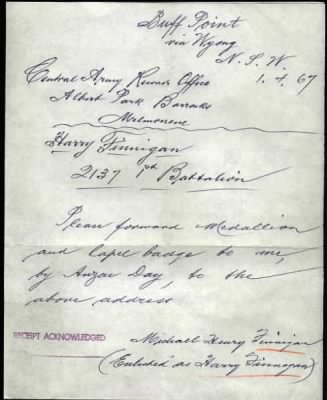 Buff Point
via Wyong
N. S. W.
Central Army Records Office 1. 4. 67
Albert Park Barracks
Melbourne
Harry Finnigan
2137 1st Battalion
Please forward Medallion
and lapel badge to me,
by Anzac Day, to the
above address
RECEIPT ACKNOWLEDGED
Michael Henry Finnigan
(Enlisted as Harry Finnegan)